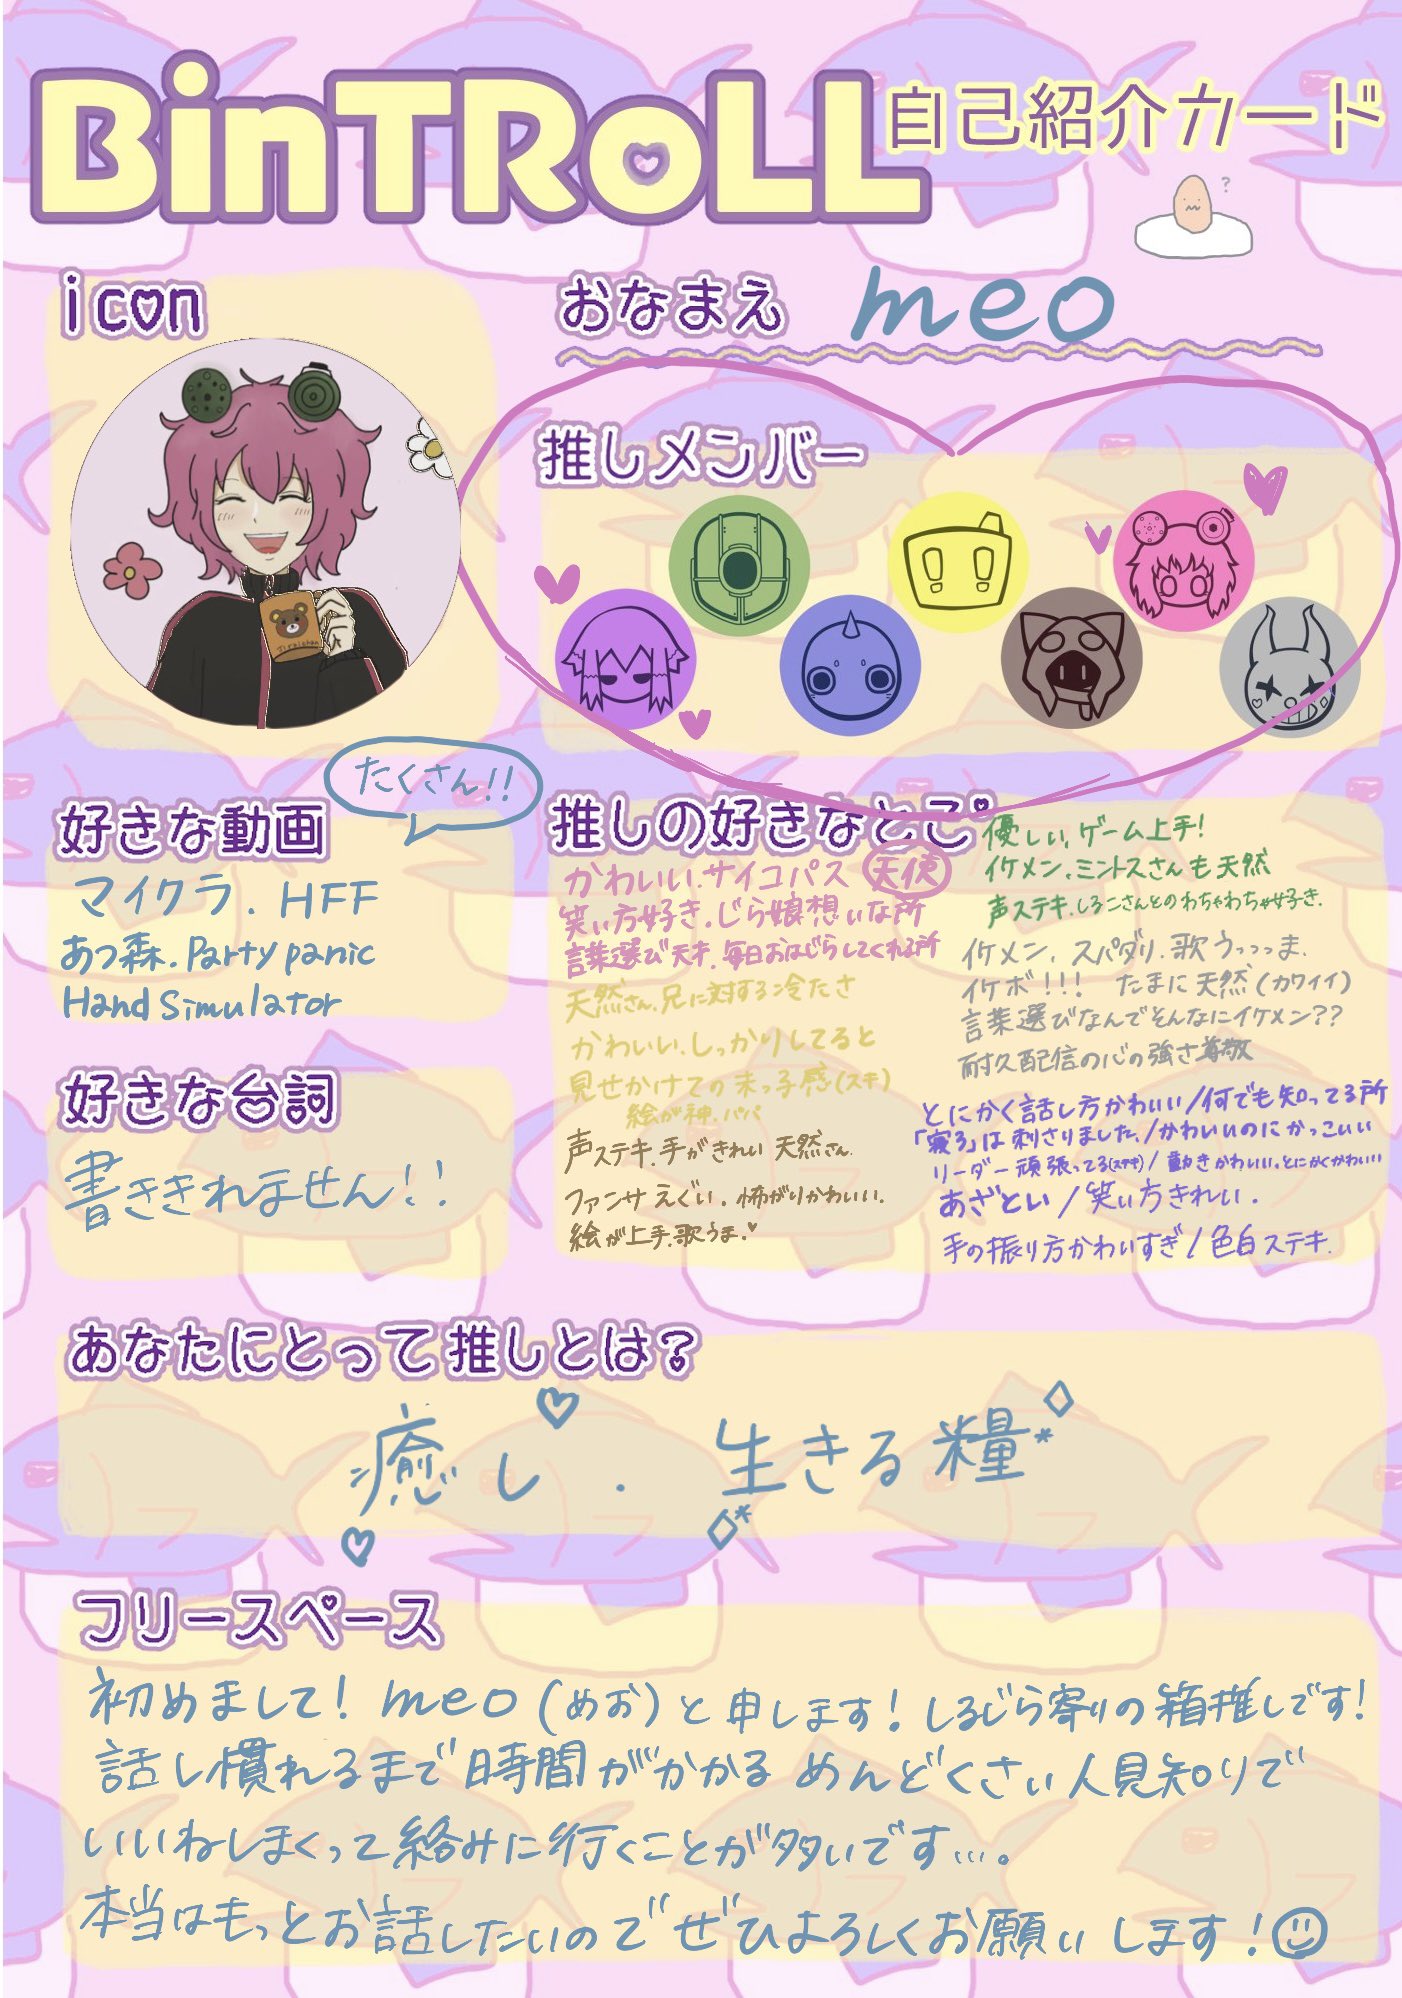 BinTRoLL 自己紹介カード
?
icon
Tiraichan
おなまえ meo
推しメンバー
たくさん!!
好きな動画
マイクラ. HFF
あつ森. Party panic
Hand Simulator
好きな台詞
書ききれません!!
推しの好きなとこ
かわいい.サイコパス 天使
笑い方好き.じら娘想いな所
言葉選び天才.毎日おはじらしてくれる所
天然さん.兄に対する冷たさ
かわいい.しっかりしてると
見せかけての末っ子感(スキ)
絵が神.パパ
声ステキ.手がきれい 天然さん.
ファンサえぐい.怖がりかわいい.
絵が上手.歌うま.
優しい,ゲーム上手!
イケメン.ミントスさんも天然
声ステキ.しろこさんとのわちゃわちゃ好き.
イケメン.スパダリ.歌うっっっま.
イケボ!!! たまに天然(カワイイ)
言葉選びなんでそんなにイケメン??
耐久配信の心の強さ尊敬
とにかく話し方かわいい/何でも知ってる所
「寝ろ」は刺さりました./かわいいのにかっこいい
リーダー頑張ってる(ステキ)/動きかわいい.とにかくかわいい
あざとい/笑い方きれい.
手の振り方かわいすぎ/色白ステキ.
あなたにとって推しとは?
癒し. 生きる糧
フリースペース
初めまして! meo(めお)と申します! しるじら寄りの箱推しです!
話し慣れるまで時間がかかるめんどくさい人見知りで
いいねしまくって絡みに行くことが多いです….
本当はもっとお話したいのでぜひよろしくお願いします!